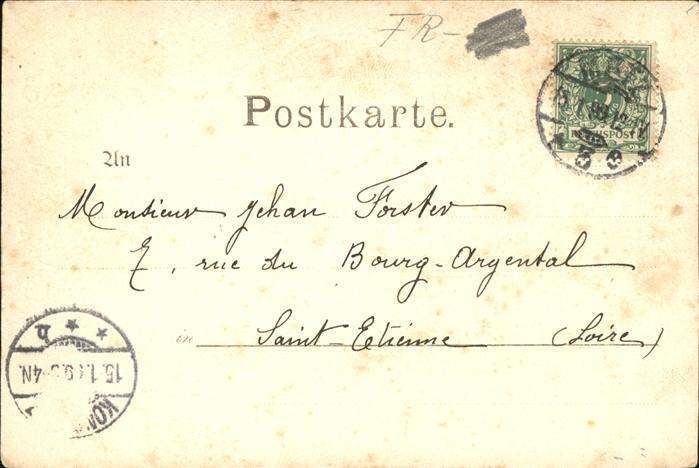 FR-
Postkarte.
An
Monsieur Jehan Forster
7, rue du Bourg-Argental
in Saint-Etienne (Loire)
REICHSPOST
15.1.